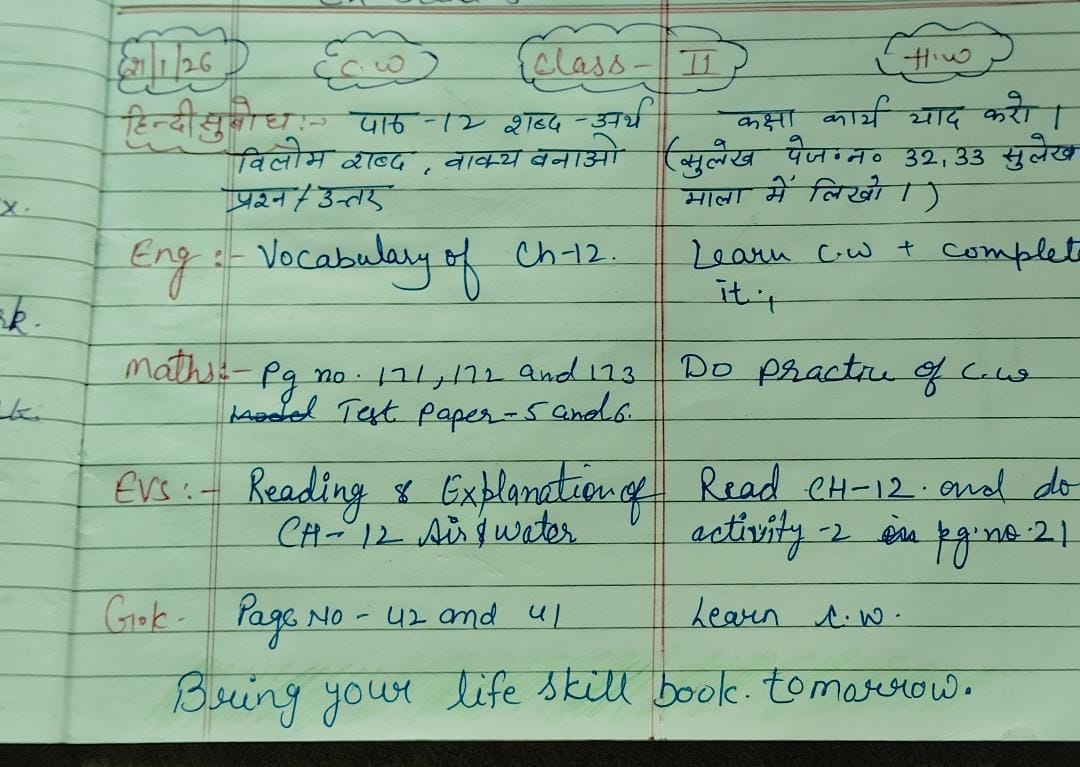 21/1/26 C.W Class- II H.W
हिन्दी सुबोध :- पाठ -12 शब्द -अर्थ कक्षा कार्य याद करो ।
विलोम शब्द , वाक्य बनाओ (सुलेख पेज॰न॰ 32,33 सुलेख
प्रश्न / उत्तर माला में लिखो ।)
x.
Eng :- Vocabulary of Ch-12. Learn C.w + complete
it.,
rk.
Maths:- Pg no. 171,172 and 173 Do practice of C.w
Model Test Paper-5 and 6.
EVS :- Reading & Explanation of Read CH-12. and do
CH-12 Air & water activity -2 in pg.no.21
G.k - Page No - 42 and 41 Learn C.w.
Bring your life skill book. tomorrow.